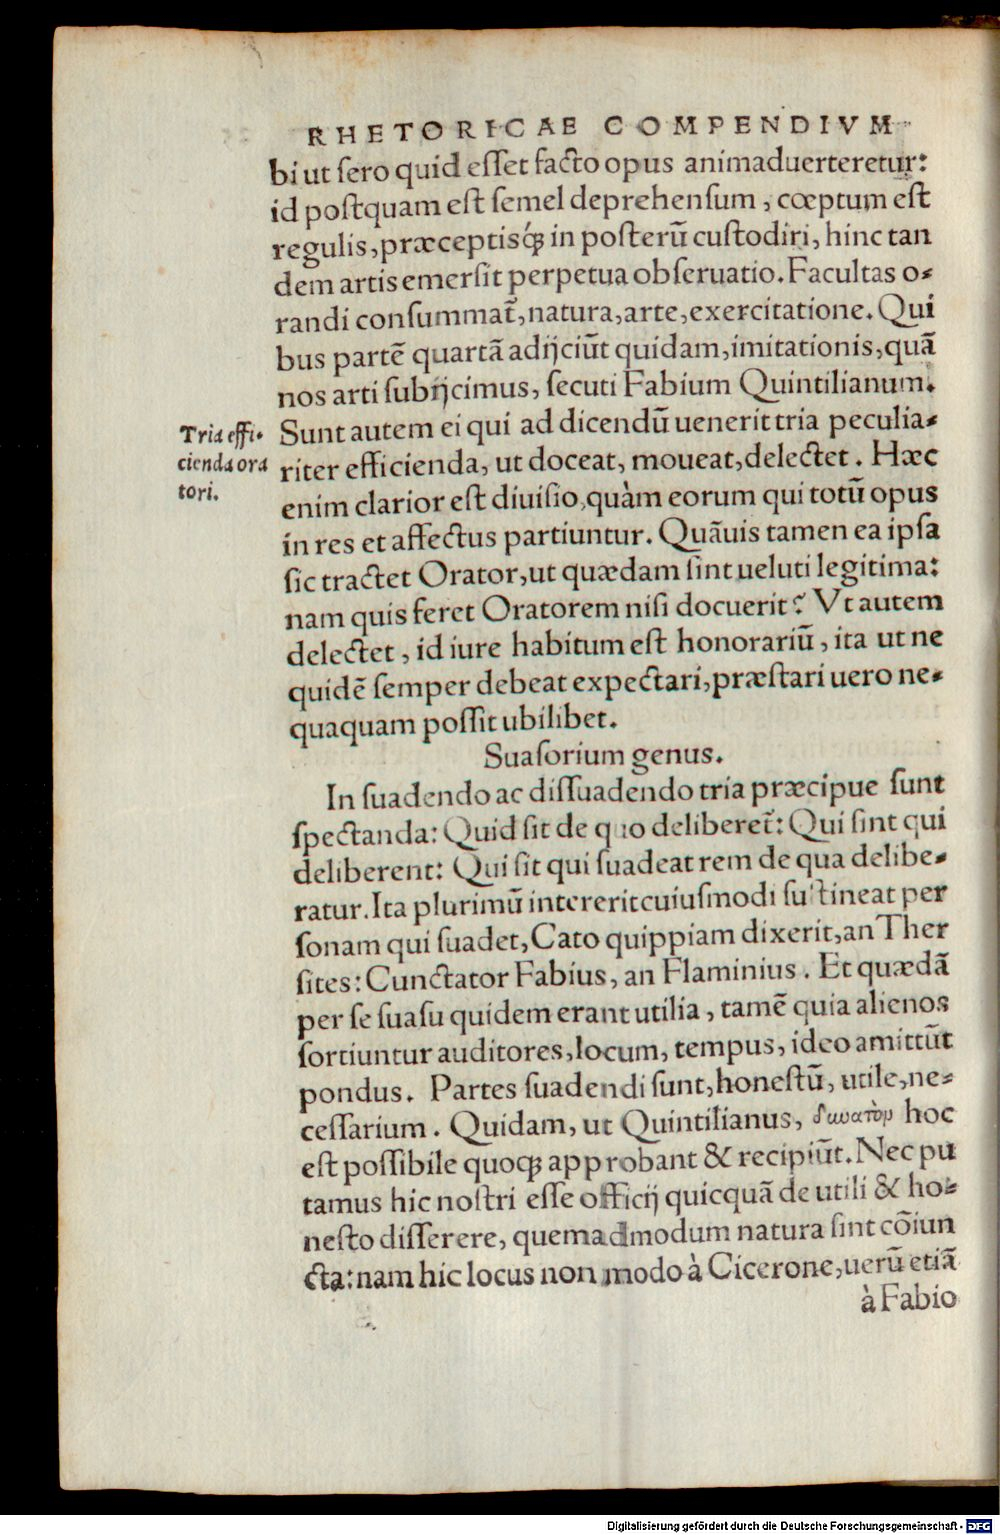 RHETORICAE COMPENDIVM
bi ut ſero quid eſſet facto opus animaduerteretur:
id poſtquam eſt ſemel deprehenſum, cœptum eſt
regulis, præceptisq́ꝫ in poſterũ cuſtodiri, hinc tan
dem artis emerſit perpetua obſeruatio. Facultas o-
randi conſummat̃, natura, arte, exercitatione. Qui
bus partẽ quartã adijciũt quidam, imitationis, quã
nos arti ſubijcimus, ſecuti Fabium Quintilianum.
Tria effi-
cienda ora
tori.
Sunt autem ei qui ad dicendũ uenerit tria peculia-
riter efficienda, ut doceat, moueat, delectet. Hæc
enim clarior eſt diuiſio, quàm eorum qui totũ opus
in res et affectus partiuntur. Quãuis tamen ea ipſa
ſic tractet Orator, ut quædam ſint ueluti legitima:
nam quis feret Oratorem niſi docuerit? Vt autem
delectet, id iure habitum eſt honorariũ, ita ut ne
quidẽ ſemper debeat expectari, præſtari uero ne-
quaquam poſſit ubilibet.
Suaſorium genus.
In ſuadendo ac diſſuadendo tria præcipue ſunt
ſpectanda: Quid ſit de quo deliberet̃: Qui ſint qui
deliberent: Qui ſit qui ſuadeat rem de qua delibe-
ratur. Ita plurimũ intererit cuiuſmodi ſuſtineat per
ſonam qui ſuadet, Cato quippiam dixerit, an Ther
ſites: Cunctator Fabius, an Flaminius. Et quædã
per ſe ſuaſu quidem erant utilia, tamẽ quia alienos
ſortiuntur auditores, locum, tempus, ideo amittũt
pondus. Partes ſuadendi ſunt, honeſtũ, utile, ne-
ceſſarium. Quidam, ut Quintilianus, δυνατὸν hoc
eſt poſſibile quoqꝫ approbant & recipiũt. Nec pu
tamus hic noſtri eſſe officij quicquã de utili & ho-
neſto differere, quemadmodum natura ſint cõiun
cta: nam hic locus non modo à Cicerone, uerũ etiã
à Fabio
Digitalisierung gefördert durch die Deutsche Forschungsgemeinschaft - DFG